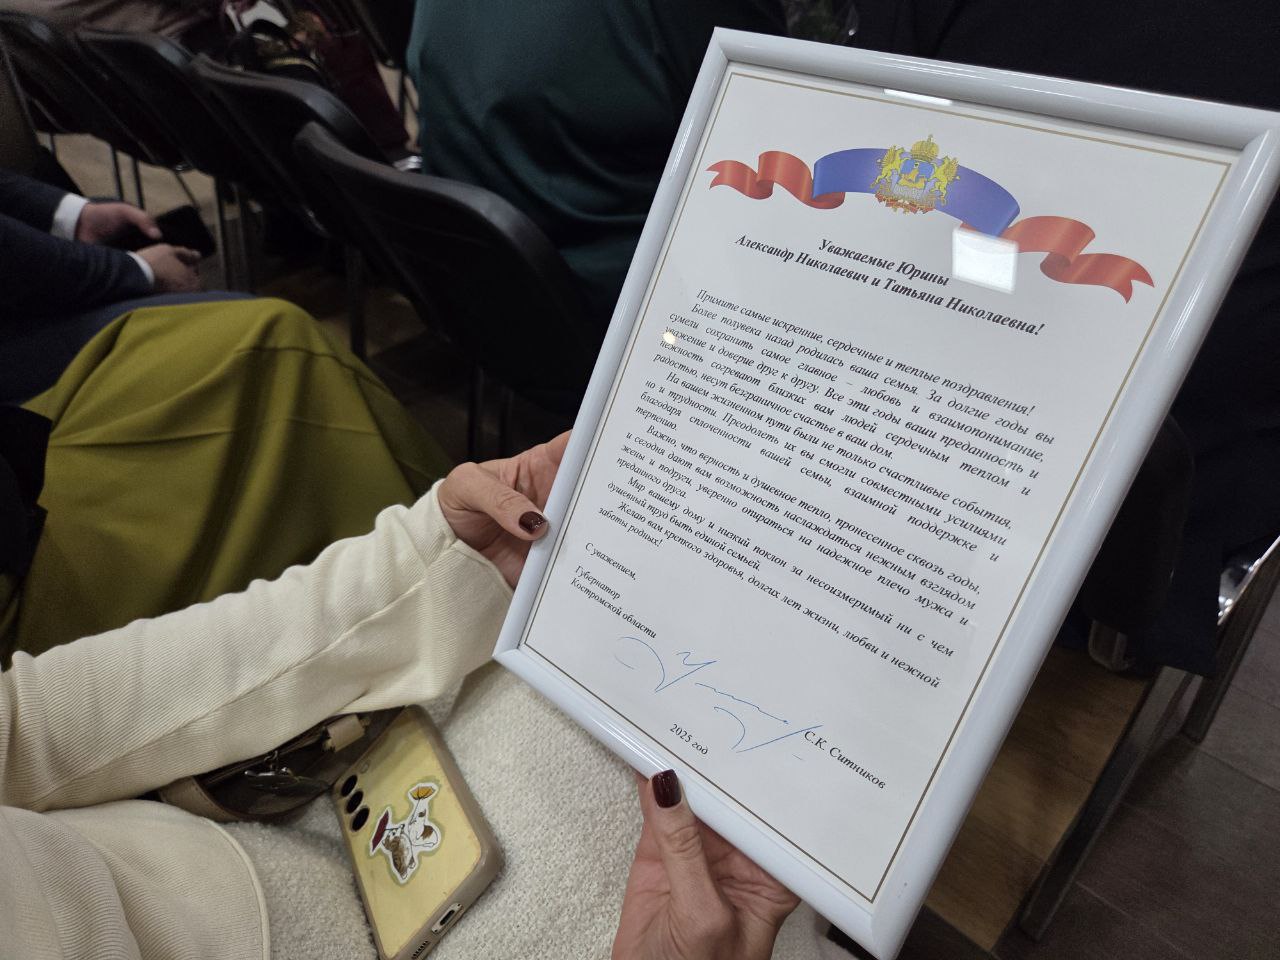 Уважаемые Юрины
Александр Николаевич и Татьяна Николаевна!
Примите самые искренние, сердечные и теплые поздравления!
Более полувека назад родилась ваша семья. За долгие годы вы
сумели сохранить самое главное – любовь и взаимопонимание,
уважение и доверие друг к другу. Все эти годы ваши преданность и
нежность согревают близких вам людей сердечным теплом и
радостью, несут безграничное счастье в ваш дом.
На вашем жизненном пути были не только счастливые события,
но и трудности. Преодолеть их вы смогли совместными усилиями
благодаря сплоченности вашей семьи, взаимной поддержке и
терпению.
Важно, что верность и душевное тепло, пронесенное сквозь годы,
и сегодня дают вам возможность наслаждаться нежным взглядом
жены и подруги, уверенно опираться на надежное плечо мужа и
преданного друга.
Мир вашему дому и низкий поклон за несоизмеримый ни с чем
душевный труд быть единой семьей.
Желаю вам крепкого здоровья, долгих лет жизни, любви и нежной
заботы родных!
С уважением,
Губернатор
Костромской области
С.К. Ситников
2025 год